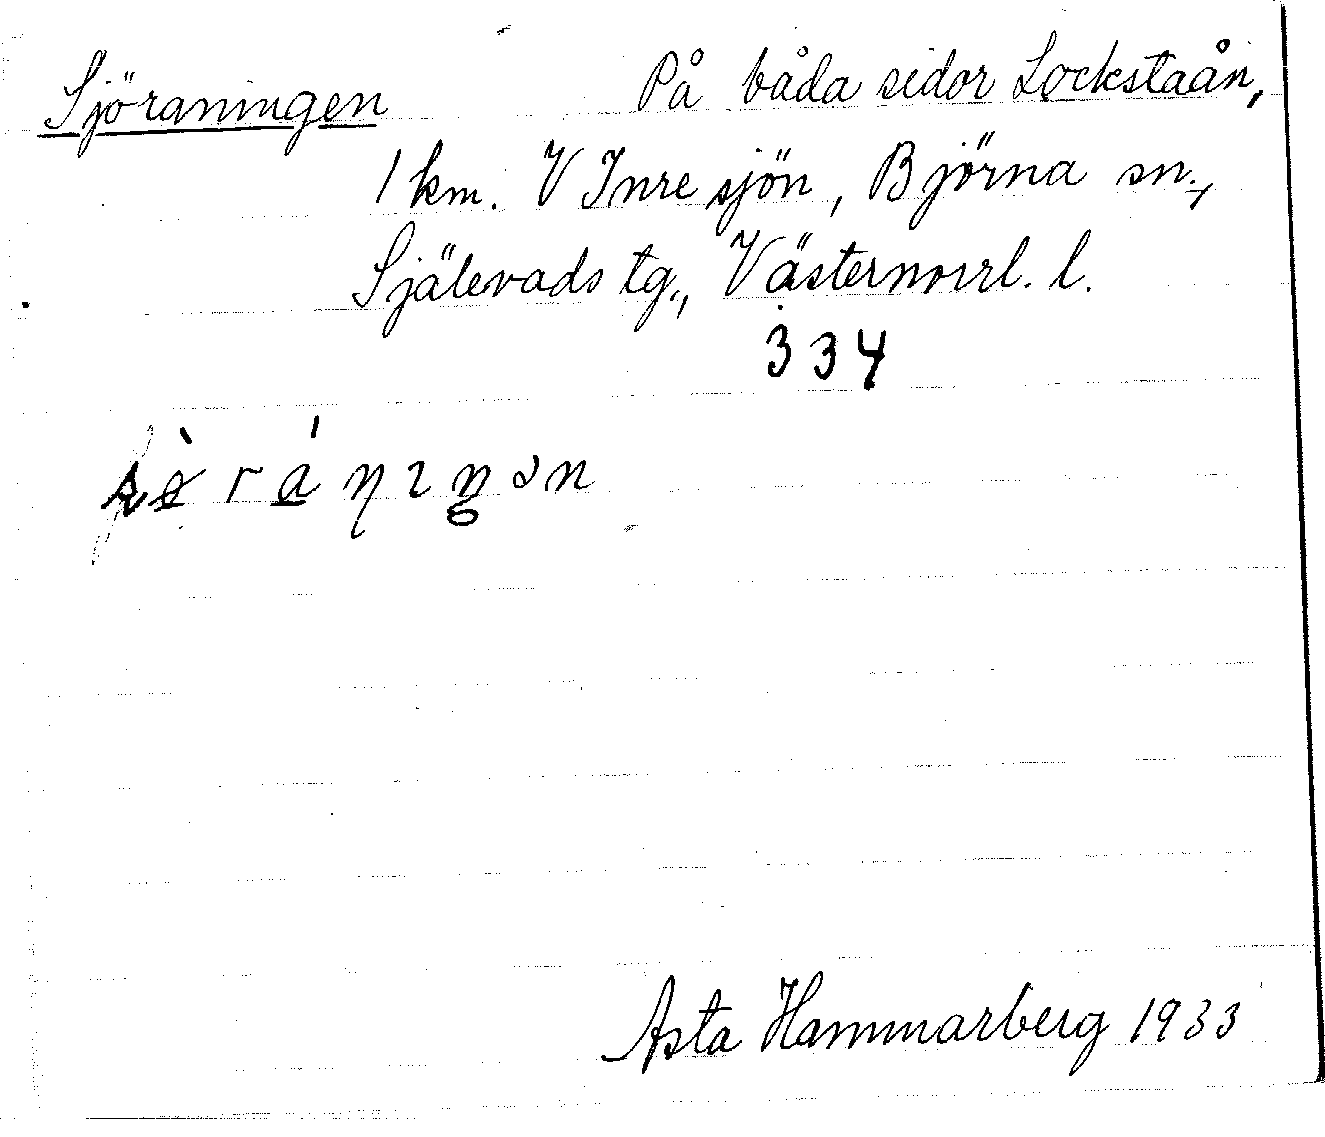 Sjöraningen På båda sidor Lockstaån,
1 km. V Inre sjön, Björna sn.,
Själevads tg., Västernorrl. l.
334
Asta Hammarberg 1933